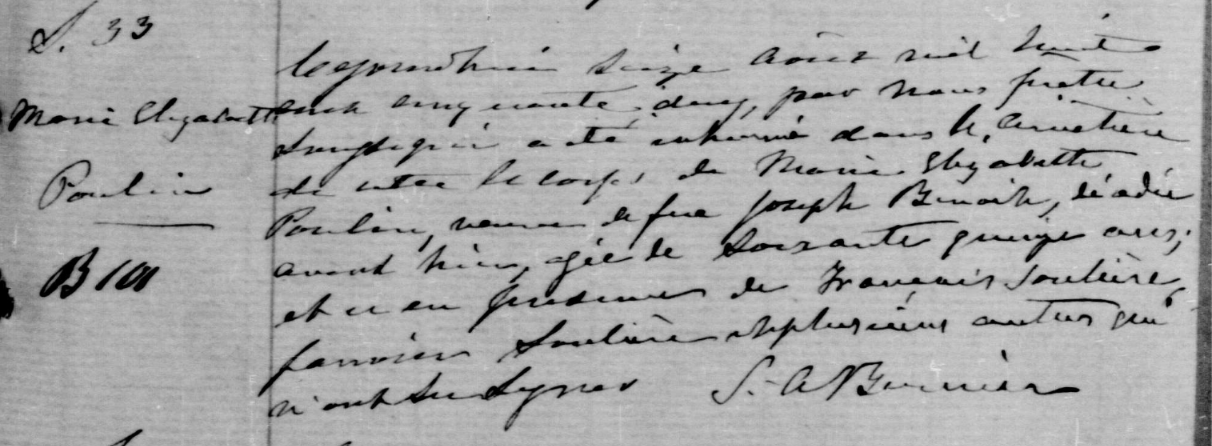 S. 33
Marie Elizabeth
Poulin
B 101
Aujourdhui seize Août mil huit
cent cinquante deux, par nous prêtre
soussigné a été inhumé dans le cimetière
de ce lieu le corps de Marie Elizabeth
Poulin, veuve de feu Joseph Benoit, décédée
avant hier, agée de soixante quinze ans;
et ce en presence de François Soulière,
Soulière et plusieurs autres qui
n'ont su signer S. A Bernier